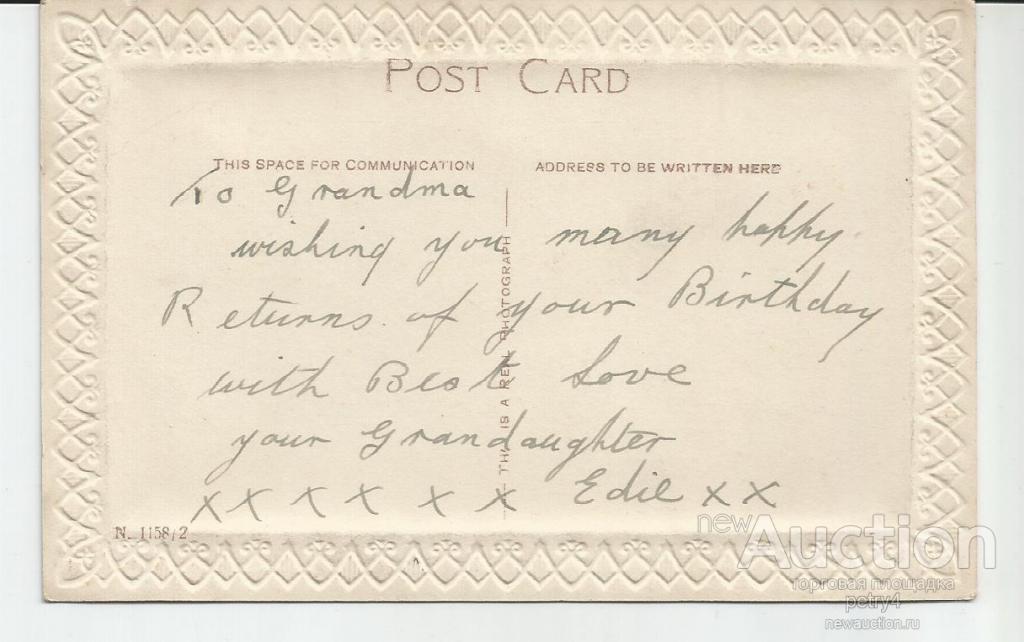 POST CARD
THIS SPACE FOR COMMUNICATION
ADDRESS TO BE WRITTEN HERE
To Grandma
wishing you many happy
Returns of your Birthday
with Best Love
your Grandaughter
xx x x x x Edie x x
THIS IS A REAL PHOTOGRAPH
N. 1158/2
newAuction
торговая площадка
petry4
newauction.ru